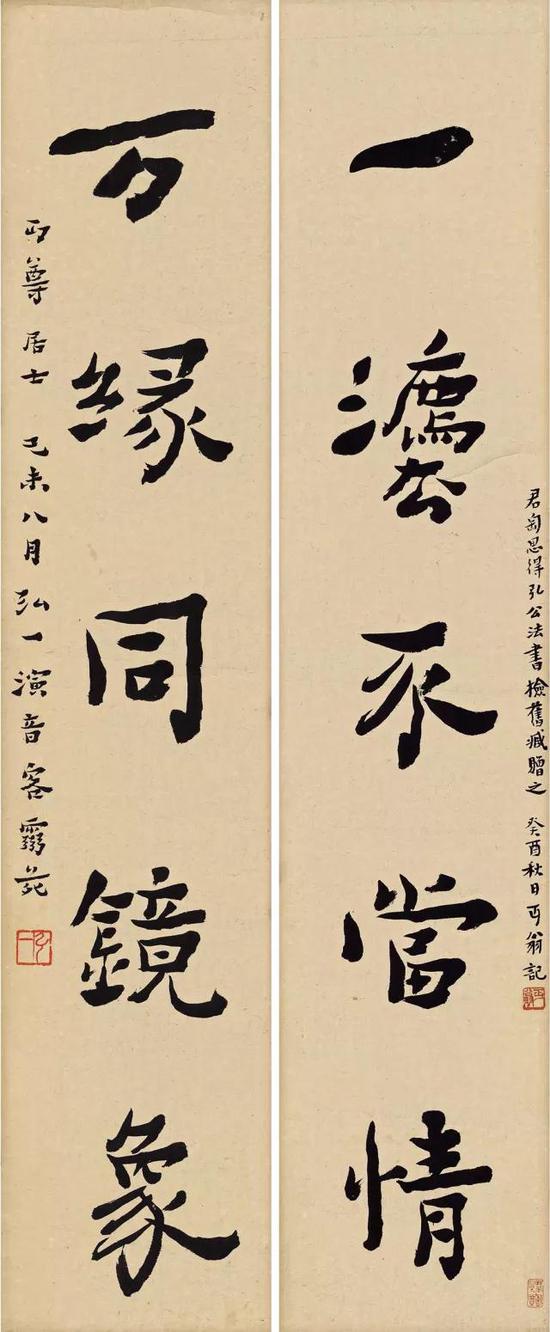 君匋思得弘公法書檢舊臧贈之 癸酉秋日丏翁記
一灋不當情
万緣同鏡象
丏尊居士 己未八月弘一演音客苑
弘一